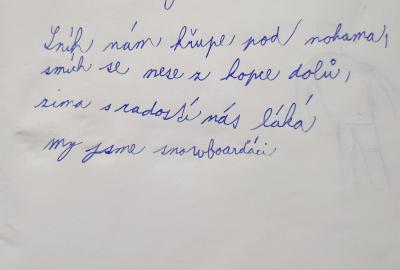 Sníh nám křupe pod nohama,
smích se nese z kopce dolů,
zima s radostí nás láká
my jsme snowboarďáci